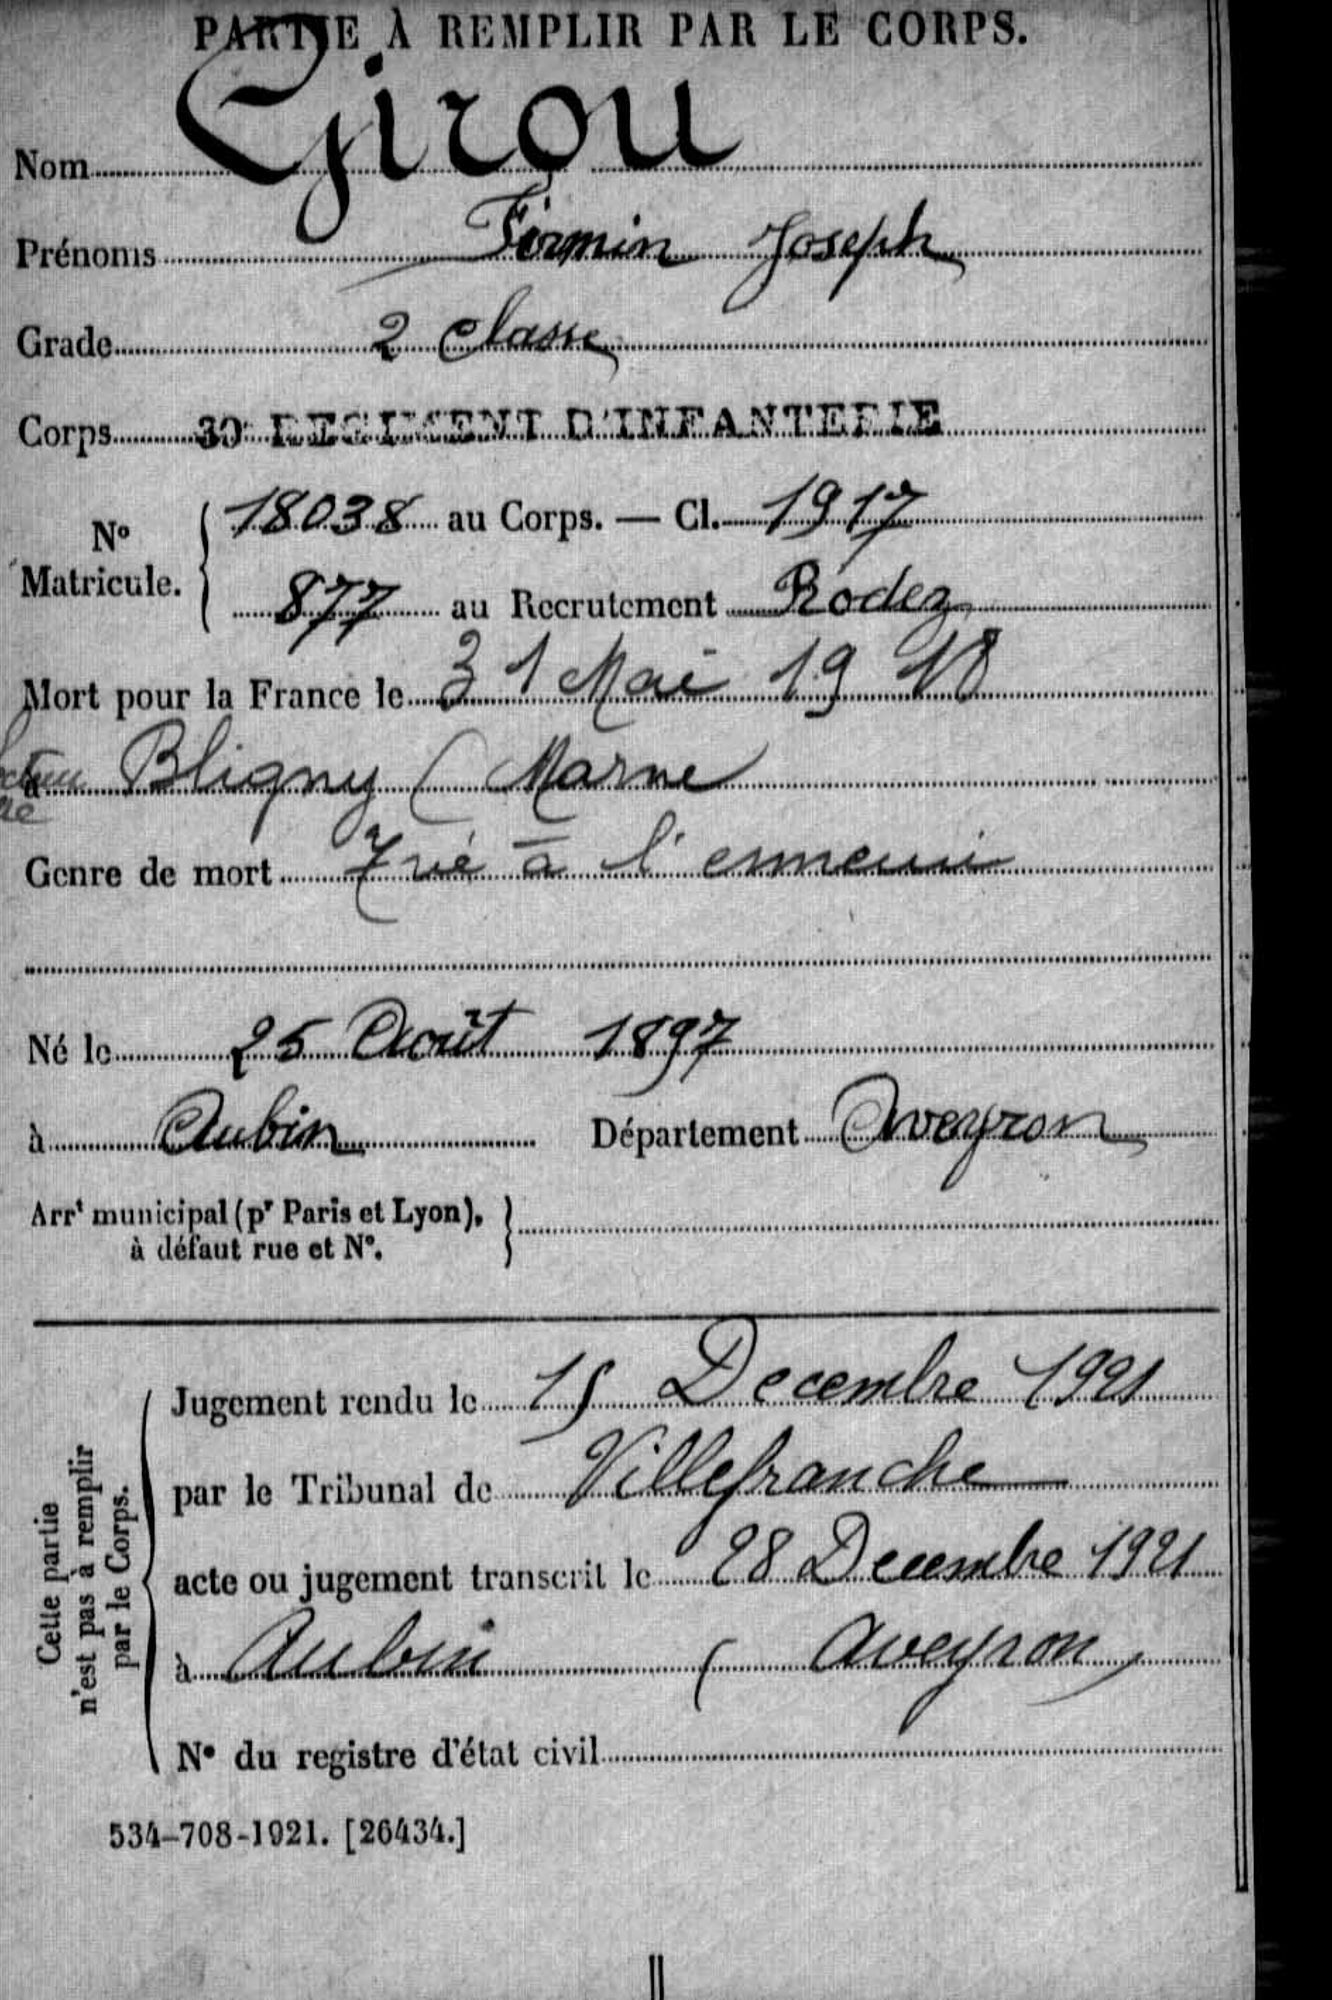 PARTIE À REMPLIR PAR LE CORPS.
Nom Girou
Prénoms Firmin Joseph
Grade 2 classe
Corps 30e REGIMENT D'INFANTERIE
No Matricule. { 18038 au Corps. — Cl. 1917
877 au Recrutement Rodez
Mort pour la France le 31 Mai 1918
à Bligny ( Marne
Genre de mort Tué à l'ennemi
Né le 25 Août 1897
à Aubin Département Aveyron
Arrt municipal (pr Paris et Lyon), }
à défaut rue et No.
Cette partie
n'est pas à remplir
par le Corps.
Jugement rendu le 15 Decembre 1921
par le Tribunal de Villefranche
acte ou jugement transcrit le 28 Decembre 1921
à Aubin ( Aveyron)
No du registre d'état civil
534-708-1921. [26434.]